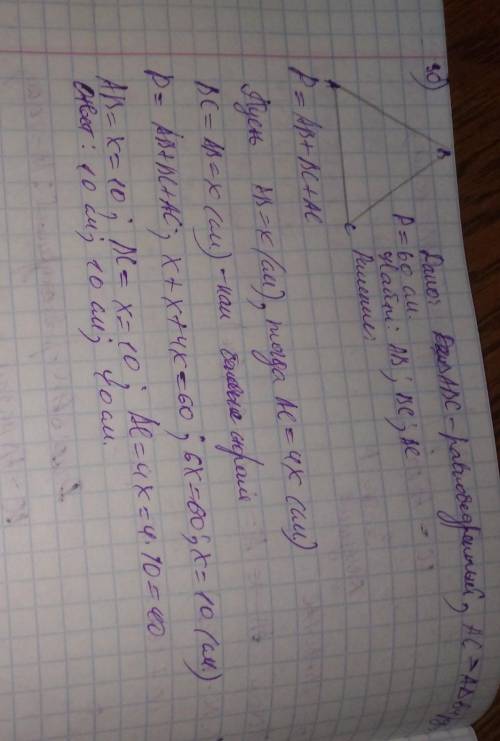 30)
Дано: ABC – равнобедренный, AC = AB
P = 60 см.
Найти: AB; BC; AC
Решение:
A
B
C
P = AB + BC + AC
Пусть AB = x (см), тогда AC = 4x (см)
BC = AB = x (см) – как боковые
P = AB + BC + AC; x + x + 4x = 60; 6x = 60; x = 10 (см.)
AB = x = 10; BC = x = 10; AC = 4x = 4 · 10 = 40
Ответ: 10 см; 10 см; 40 см.